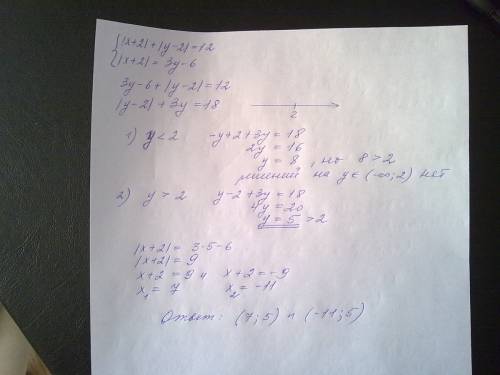 |x+2|+|y-2|=12
|x+2|=3y-6
3y-6+|y-2|=12
|y-2|+3y=18
2
1) y<2 -y+2+3y=18
2y=16
y=8, но 8>2
решений на y∈(-∞;2) нет
2) y>2 y-2+3y=18
4y=20
y=5>2
|x+2|=3·5-6
|x+2|=9
x+2=9 и x+2=-9
x₁=7 x₂=-11
Ответ: (7;5) и (-11;5)